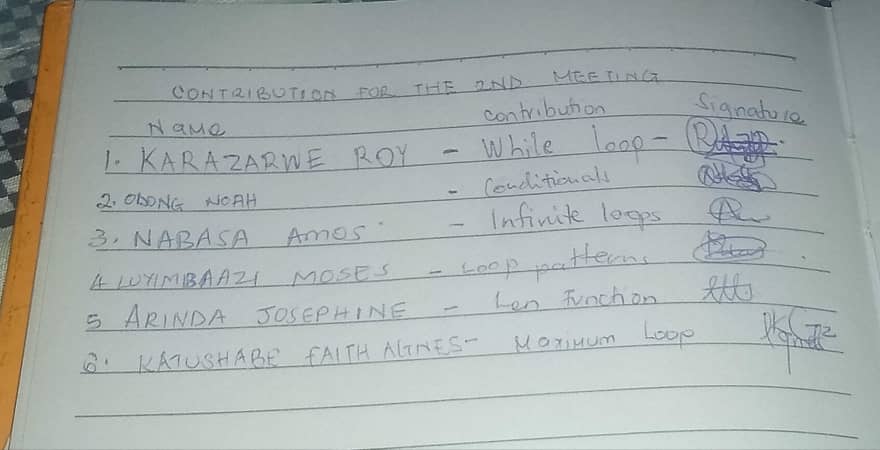 CONTRIBUTION FOR THE 2ND MEETING
Name contribution Signature
1. KARAZARWE ROY - While loop -
2. OBONG NOAH - Conditionals
3. NABASA AMOS - Infinite loops
4 LUYIMBAAZI MOSES - Loop patterns
5 ARINDA JOSEPHINE - Len Function
6. KATUSHABE FAITH AGNES - Maximum Loop